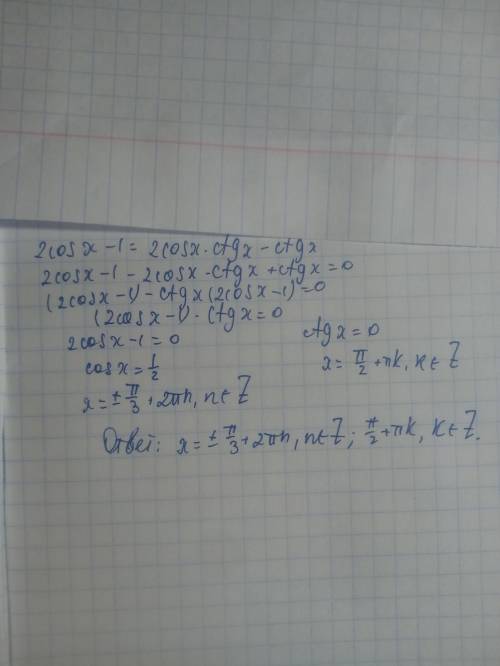 2cosx - 1 = 2cosx·ctgx - ctgx
2cosx - 1 - 2cosx·ctgx + ctgx = 0
(2cosx - 1) - ctgx(2cosx - 1) = 0
(2cosx - 1) · ctgx = 0
2cosx - 1 = 0 ctgx = 0
cosx = 1/2 x = π/2 + πk, k ∈ Z
x = ± π/3 + 2πn, n ∈ Z
Ответ: x = ± π/3 + 2πn, n ∈ Z; π/2 + πk, k ∈ Z.